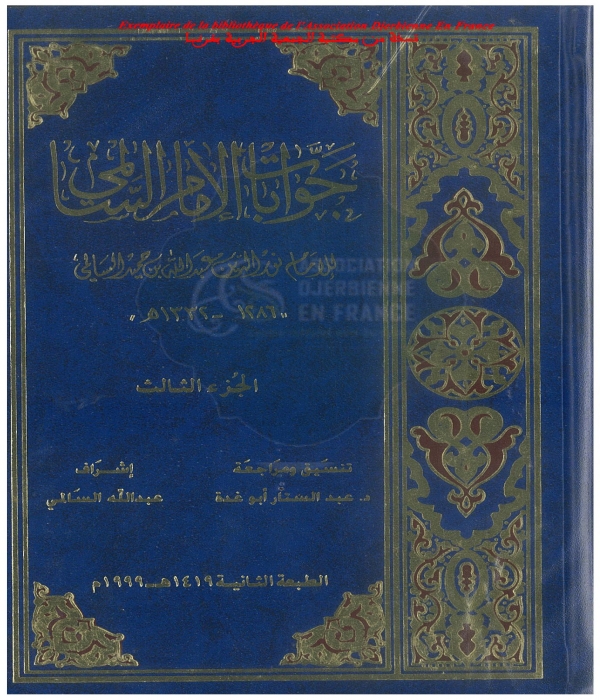 Exemplaire de la bibliothèque de l'Association Djerbienne En France
نسخة من مكتبة الجمعية الجربية بفرنسا
جوابات الإمام السالمي
للإمام نور الدين عبد الله بن حميد السالمي
ASSOCIATION
DJERBIENNE
EN FRANCE
"١٢٨٦ - ١٣٣٢هـ"
الجزء الثالث
تنسيق ومراجعة
د. عبد الستار أبو غدة
إشراف
عبدالله السالمي
الطبعة الثانية ١٤١٩هـ - ١٩٩٩م